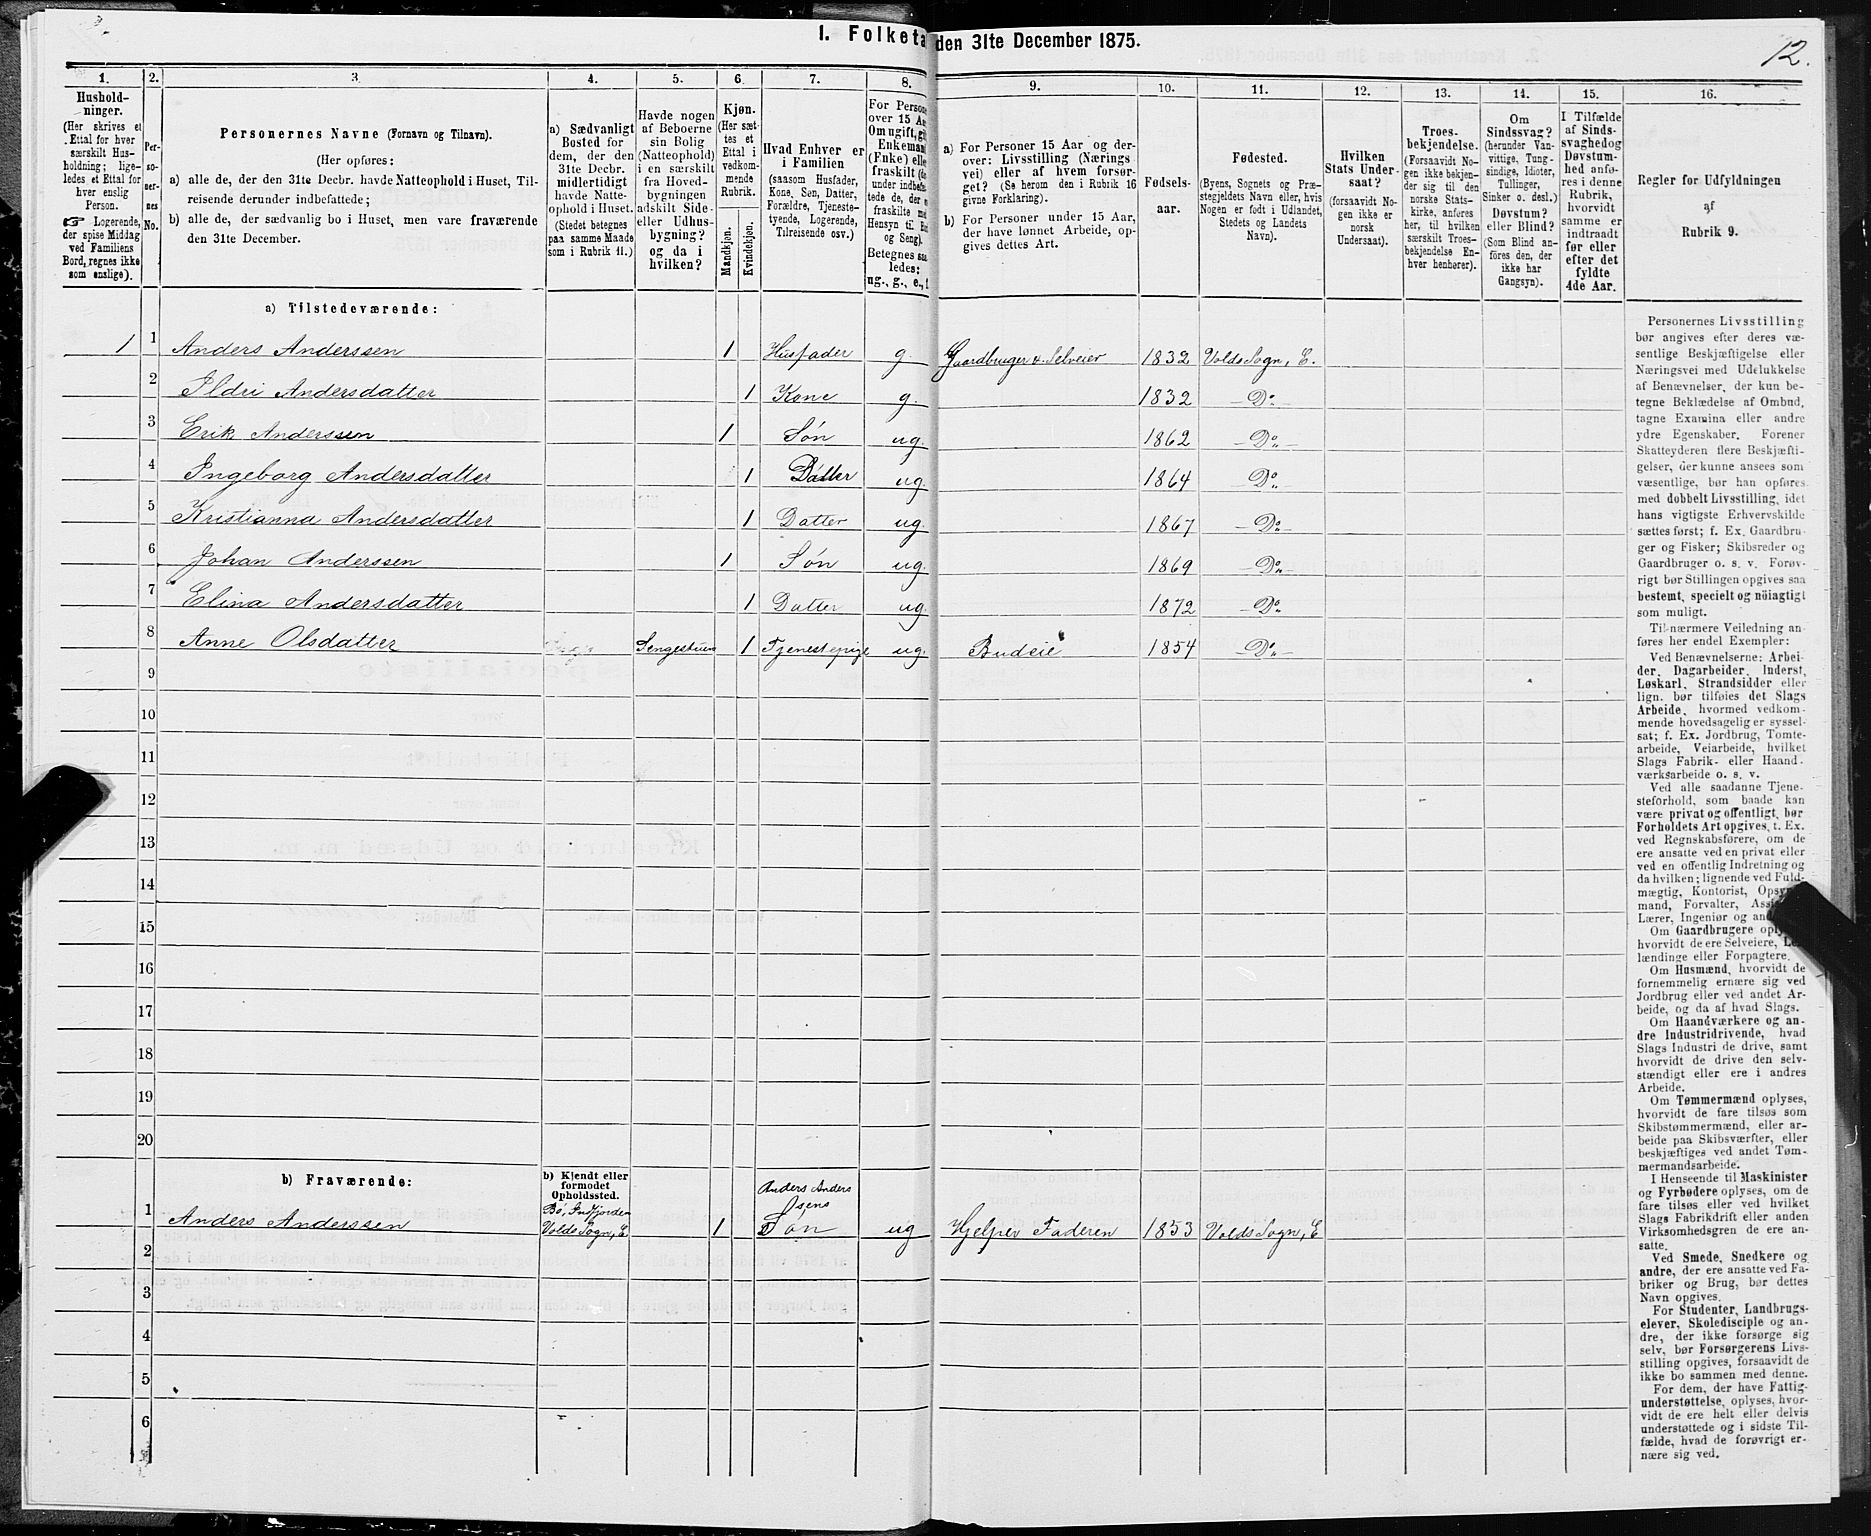 1. Folketa den 31te December 1875.
12.
1. 2. 3. 4. 5. 6. 7. 8. 9. 10. 11. 12. 13. 14. 15. 16.
Hushold-
ninger.
(Her skrives et
Ettal for hver
særskilt Hus-
holdning; lige-
ledes et Ettal for
hver enslig
Person.
☞ Logerende,
der spise Middag
ved Familiens
Bord, regnes ikke
som enslige).
Per-
so-
ner-
nes
No.
Personernes Navne (Fornavn og Tilnavn).
(Her opføres:
a) alle de, der den 31te Decbr. havde Natteophold i Huset, Til-
reisende derunder indbefattede;
b) alle de, der sædvanlig bo i Huset, men vare fraværende
den 31te December.
a) Sædvanligt
Bosted for
dem, der den
31te Decbr.
midlertidigt
havde Natte-
ophold i Huset.
(Stedet betegnes
paa samme Maade
som i Rubrik 11.)
Havde nogen
af Beboerne
sin Bolig
(Natteophold)
i en særskilt
fra Hoved-
bygningen
adskilt Side-
eller Udhus-
bygning?
og da i
hvilken?
Kjøn.
(Her sæt-
tes et
Ettal i
vedkom-
mende
Rubrik.
Mandkjøn.
Kvindekjøn.
Hvad Enhver er
i Familien
(saasom Husfader,
Kone, Søn, Datter,
Forældre, Tjeneste-
tyende, Logerende,
Tilreisende osv.)
For Persone
over 15 Aa
Om ugift, gi
Enkeman
(Enke) elle
fraskilt (de
under indbefat-
tede de, der e
fraskilte me
Hensyn til Bo
og Seng).
Betegnes saa
ledes:
ug., g., e., f
a) For Personer 15 Aar og der-
over: Livsstilling (Nærings
vei) eller af hvem forsør-
get? (Se herom den i Rubrik 16
givne Forklaring).
b) For Personer under 15 Aar,
der have lønnet Arbeide, op-
gives dettes Art.
Fødsels-
aar.
Fødested.
(Byens, Sognets og Præ-
stegjeldets Navn eller, hvis
Nogen er født i Udlandet,
Stedets og Landets
Navn).
Hvilken
Stats Under-
saat?
(forsaavidt No-
gen ikke er
norsk
Undersaat).
Troes-
bekjendelse.
(Forsaavidt No-
gen ikke bekjen-
der sig til den
norske Stats-
kirke, anføres
her, til hvilken
særskilt Troes-
bekjendelse En-
hver henhører).
Om
Sindssvag?
(herunder Van-
vittige, Tung-
sindige, Idioter,
Tullinger,
Sinker o. desl.)
Døvstum?
eller Blind?
(Som Blind an-
føres den, der
ikke har
Gangsyn).
I Tilfælde
af Sinds-
svaghed og
Døvstum-
hed anfø-
res i denne
Rubrik,
hvorvidt
samme er
indtraadt
før eller
efter det
fyldte
4de Aar.
Regler for Udfyldningen
af
Rubrik 9.
a) Tilstedeværende:
1 1 Anders Anderssen 1 Husfader g. Gaardbruger & Selveier 1832 Volds Sogn, E.
2 Ildri Andersdatter 1 Kone g. 1832 — Do —
3 Erik Anderssen 1 Søn ug. 1862 — Do —
4 Ingeborg Andersdatter 1 Datter ug. 1864 — Do —
5 Kristianna Andersdatter 1 Datter ug. 1867 — Do —
6 Johan Anderssen 1 Søn ug. 1869 — Do —
7 Elina Andersdatter 1 Datter ug. 1872 — Do —
8 Anne Olsdatter Sengestuen 1 Tjenestepige ug. Budeie 1854 — Do —
9
10
11
12
13
14
15
16
17
18
19
20
b) Fraværende:
b) Kjendt eller
formodet
Opholdssted.
Anders Anders
sens
1 Anders Anderssen Bø, Indfjorden Volds Sogn, E 1 Søn ug Hjelper Faderen 1853 Volds Sogn, E
2
3
4
5
6
Personernes Livsstilling
bør angives efter deres væ-
sentlige Beskjæftigelse eller
Næringsvei med Udelukkelse
af Benævnelser, der kun be-
tegne Beklædelse af Ombud,
tagne Examina eller andre
ydre Egenskaber. Forener
Skatteyderen flere Beskjæfti-
gelser, der kunne ansees som
væsentlige, bør han opføres
med dobbelt Livsstilling, idet
hans vigtigste Erhvervskilde
sættes først; f. Ex. Gaardbru-
ger og Fisker; Skibsreder og
Gaardbruger o. s. v. Forøv-
rigt bør Stillingen opgives saa
bestemt, specielt og nöiagtigt
som muligt.
Til nærmere Veiledning an-
føres her endel Exempler:
Ved Benævnelserne: Arbei-
der, Dagarbeider, Inderst,
Løskarl, Strandsidder eller
lign. bør tilføies det Slags
Arbeide, hvormed vedkom-
mende hovedsagelig er syssel-
sat; f. Ex. Jordbrug, Tomte-
arbeide, Veiarbeide, hvilket
Slags Fabrik- eller Haand-
værksarbeide o. s. v.
Ved alle saadanne Tjene-
steforhold, som baade kan
være privat og offentligt, bør
Forholdets Art opgives, t. Ex.
ved Regnskabsførere, om de
ere ansatte ved en privat eller
ved en offentlig Indretning og
da hvilken; lignende ved Fuld-
mægtig, Kontorist, Opsyns-
mand, Forvalter, Assi
Lærer, Ingeniør og an
Om Gaardbrugere oply
hvorvidt de ere Selveiere, Lei-
lændinge eller Forpagtere.
Om Husmænd, hvorvidt de
fornemmelig ernære sig ved
Jordbrug eller ved andet Ar-
beide, og da af hvad Slags.
Om Haandværkere og an-
dre Industridrivende, hvad
Slags Industri de drive, samt
hvorvidt de drive den selv-
stændigt eller ere i andres
Arbeide.
Om Tømmermænd oplyses,
hvorvidt de fare tilsøs som
Skibstømmermænd, eller ar-
beide paa Skibsværfter, eller
beskjæftiges ved andet Tøm-
mermandsarbeide.
I Henseende til Maskinister
og Fyrbødere oplyses, om de
fare tilsøs eller ved hvilket
Slags Fabrikdrift eller anden
Virksomhedsgren de ere an-
satte.
Ved Smede, Snedkere og
andre, der ere ansatte ved Fa-
briker og Brug, bør dettes
Navn opgives.
For Studenter, Landbrugs-
elever, Skoledisciple og an-
dre, der ikke forsørge sig
selv, bør Forsørgerens Livs-
stilling opgives, forsaavidt de
ikke bo sammen med denne.
For dem, der have Fattig-
understøttelse, oplyses, hvor-
vidt de ere helt eller delvis
understøttede og i sidste Til-
fælde, hvad de forøvrigt er-
nære sig ved.